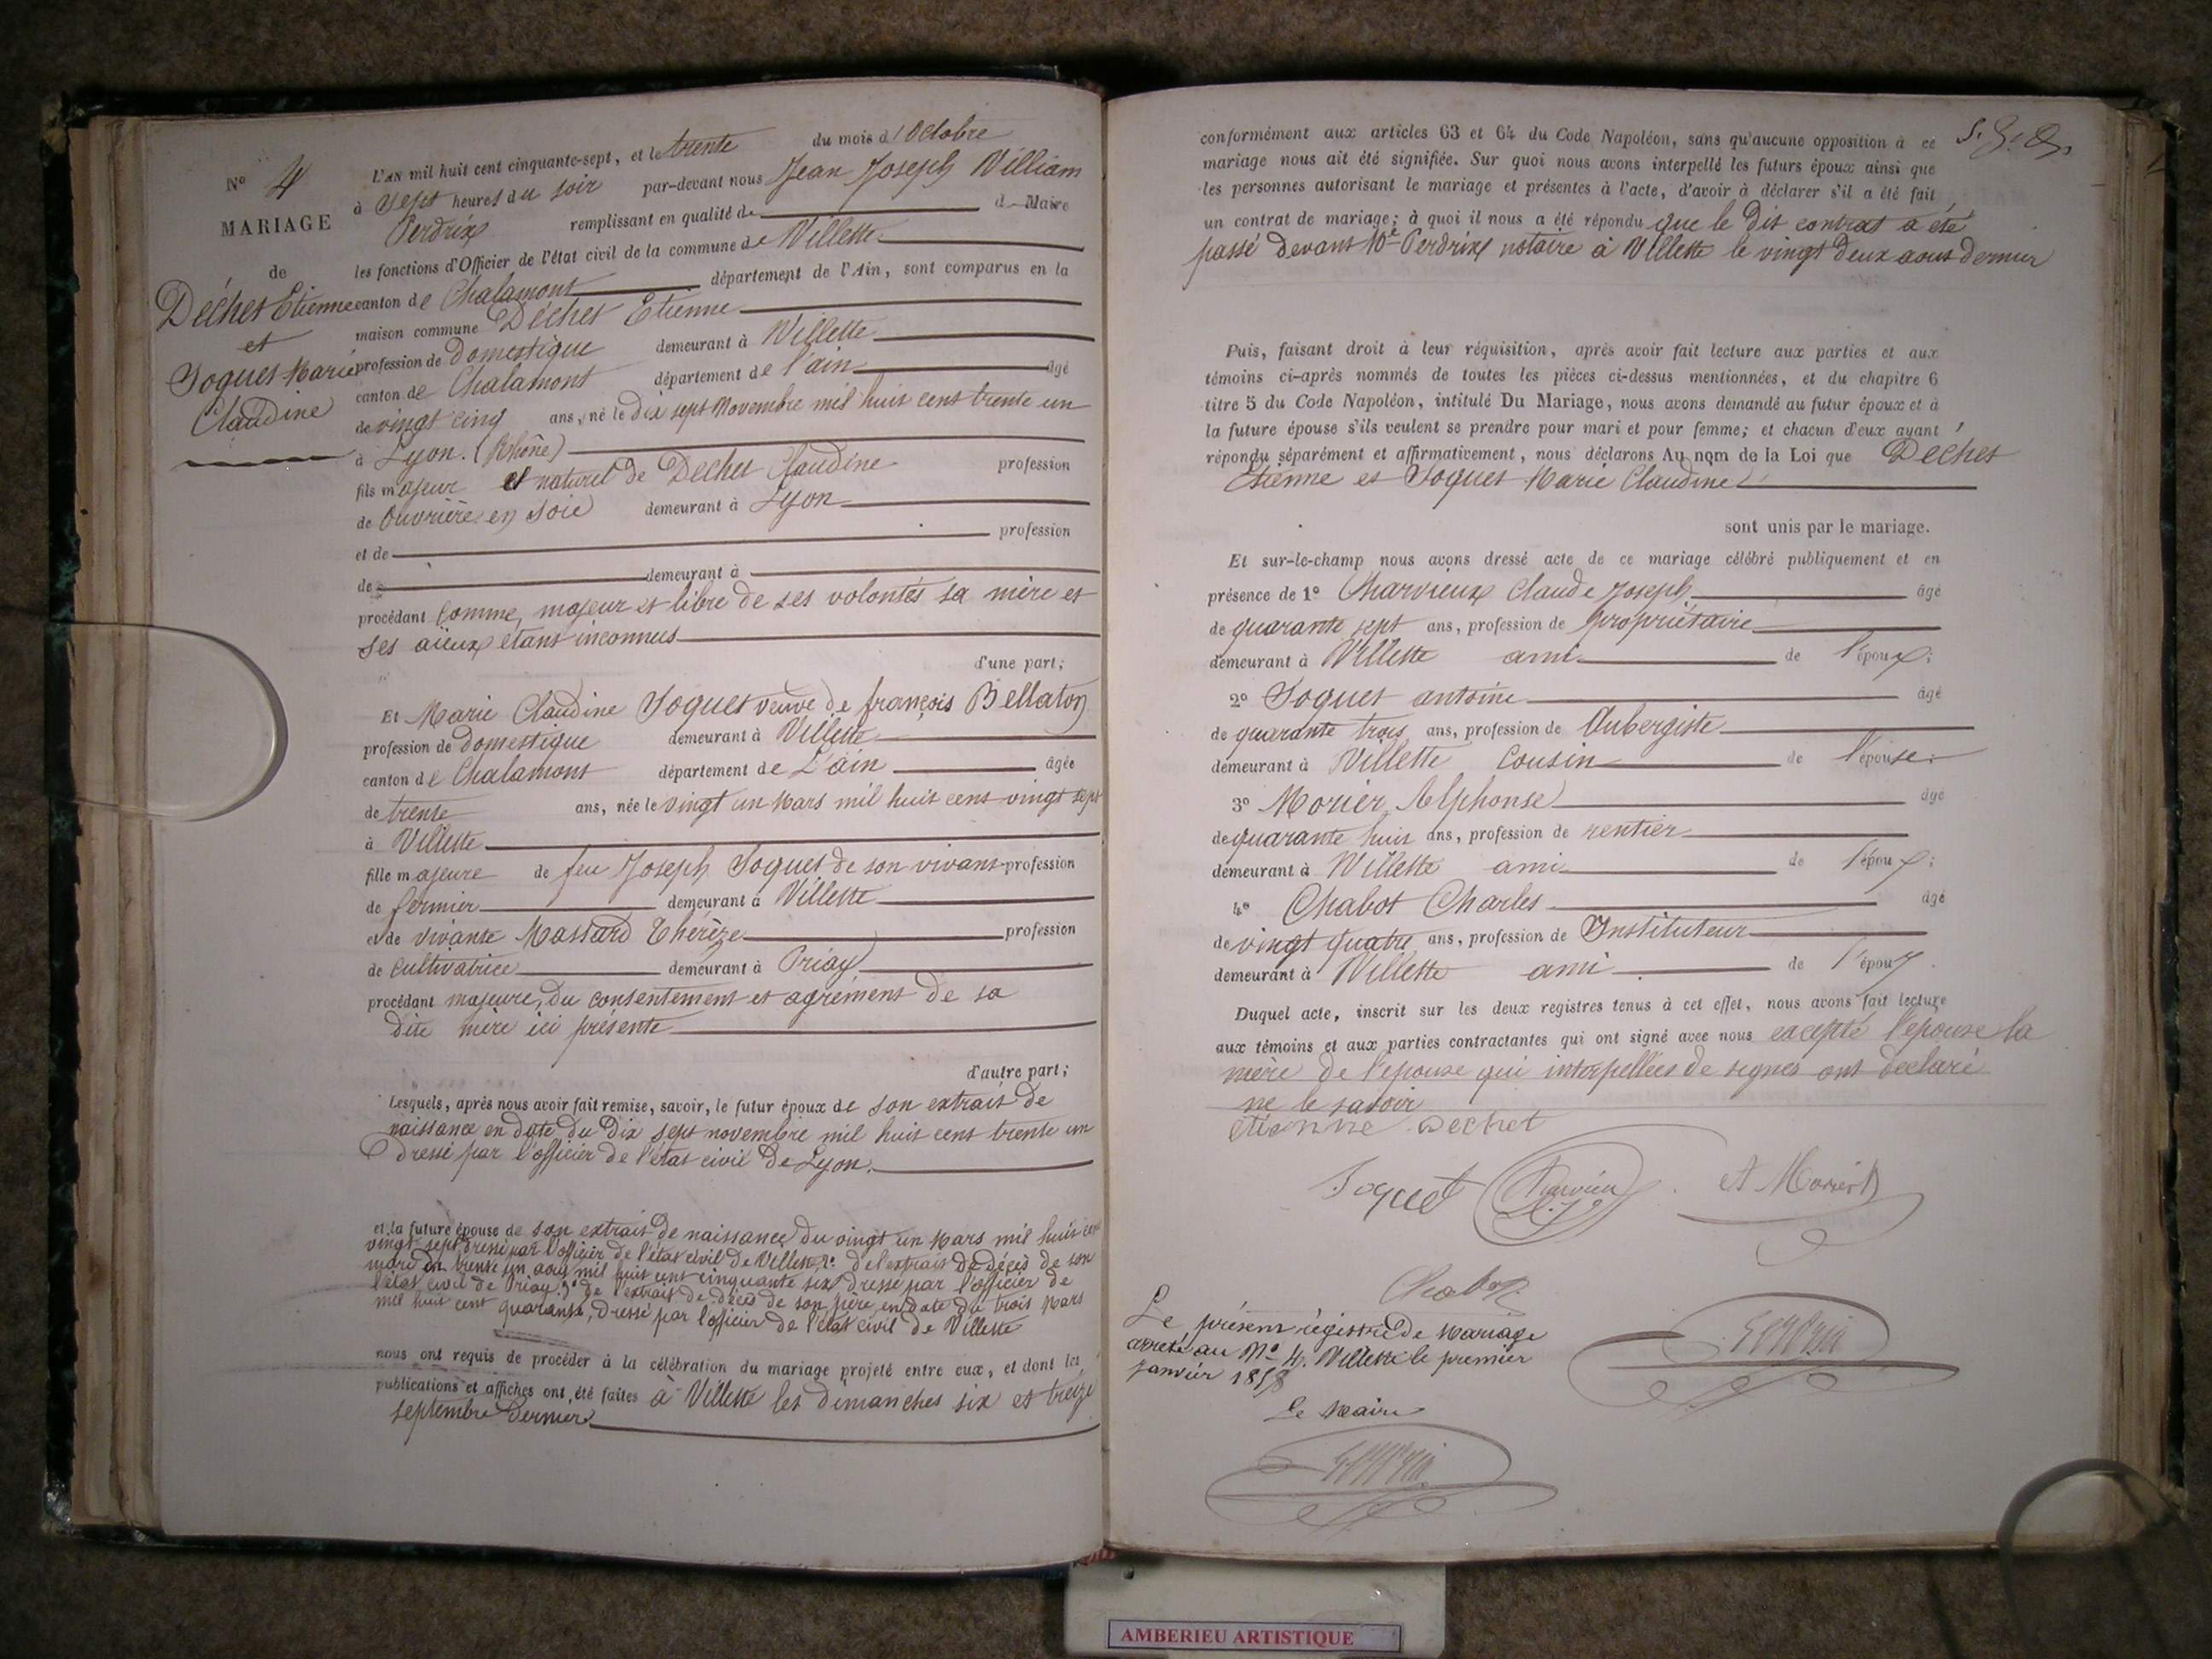 N° 4
MARIAGE
de
Déchet Etienne
et
Joquet Marie
Claudine
L'AN mil huit cent cinquante-sept, et le trente du mois d'Octobre
à sept heures du soir par-devant nous Jean Joseph William
Perdrix remplissant en qualité de d Maire
les fonctions d'Officier de l'état civil de la commune de Villette
canton de Chalamont département de l'Ain, sont comparus en la
maison commune Déchet Etienne
profession de Domestique demeurant à Villette
canton de Chalamont département de l'ain âgé
de vingt cinq ans, né le dix sept Novembre mil huit cent trente un
à Lyon. (Rhône)
fils majeur et naturel de Dechet Claudine profession
de Ouvrière en Soie demeurant à Lyon
et de profession
de demeurant à
procédant comme, majeur et libre de ses volontés sa mère et
ses aïeux étant inconnus
d'une part;
Et Marie Claudine Joquet veuve de françois Bellaton
profession de domestique demeurant à Villette
canton de Chalamont département de L'ain âgée
de trente ans, née le vingt un Mars mil huit cent vingt sept
à Villette
fille majeure de feu Joseph Joquet de son vivant profession
de fermier demeurant à Villette
et de vivante Massard Thérèze profession
de cultivatrice demeurant à Priay
procédant majeure, du consentement et agrément de sa
dite mère ici présente
d'autre part;
Lesquels, après nous avoir fait remise, savoir, le futur époux de son extrait de
naissance en date du dix sept novembre mil huit cent trente un
dressé par l'officier de l'état civil de Lyon.
et la future épouse de son extrait de naissance du vingt un Mars mil huit cent
vingt sept dressé par l'officier de l'état civil de Villette 2° de l'extrait de décès de son
mari du trente un aout mil huit cent cinquante six dressé par l'officier de
l'état civil de Priay. 3° de l'extrait de décès de son père, en date du trois Mars
mil huit cent quarante, dressé par l'officier de l'état civil de Villette
nous ont requis de procéder à la célébration du mariage projeté entre eux, et dont les
publications et affiches ont été faites à Villette les dimanches six et treize
septembre dernier
conformément aux articles 63 et 64 du Code Napoléon, sans qu'aucune opposition à ce
mariage nous ait été signifiée. Sur quoi nous avons interpellé les futurs époux ainsi que
les personnes autorisant le mariage et présentes à l'acte, d'avoir à déclarer s'il a été fait
un contrat de mariage; à quoi il nous a été répondu que le dit contrat a été
passé devant Me Perdrix notaire à Villette le vingt deux aout dernier
Puis, faisant droit à leur réquisition, après avoir fait lecture aux parties et aux
témoins ci-après nommés de toutes les pièces ci-dessus mentionnées, et du chapitre 6
titre 5 du Code Napoléon, intitulé Du Mariage, nous avons demandé au futur époux et à
la future épouse s'ils veulent se prendre pour mari et pour femme; et chacun d'eux ayant
répondu séparément et affirmativement, nous déclarons Au nom de la Loi que Déchet
Etienne et Joquet Marie Claudine
sont unis par le mariage.
Et sur-le-champ nous avons dressé acte de ce mariage célébré publiquement et en
présence de 1° Charvieux Claude Joseph âgé
de quarante sept ans, profession de propriétaire
demeurant à Villette ami de l'époux;
2° Joquet antoine âgé
de quarante trois ans, profession de Aubergiste
demeurant à Villette Cousin de l'épouse;
3° Morier, Alphonse âgé
de quarante huit ans, profession de rentier
demeurant à Villette ami de l'époux;
4° Chabot Charles âgé
de vingt quatre ans, profession de Instituteur
demeurant à Villette ami de l'époux.
Duquel acte, inscrit sur les deux registres tenus à cet effet, nous avons fait lecture
aux témoins et aux parties contractantes qui ont signé avec nous excepté l'épouse la
mère de l'épouse qui interpellées de signer ont declaré
ne le savoir
etienne Dechet
Joquet Charvieu A Morier
Chabot
Le présent régistre de Mariage
arreté au No 4. Villette le premier
Janvier 1858
Le Maire
AMBERIEU ARTISTIQUE